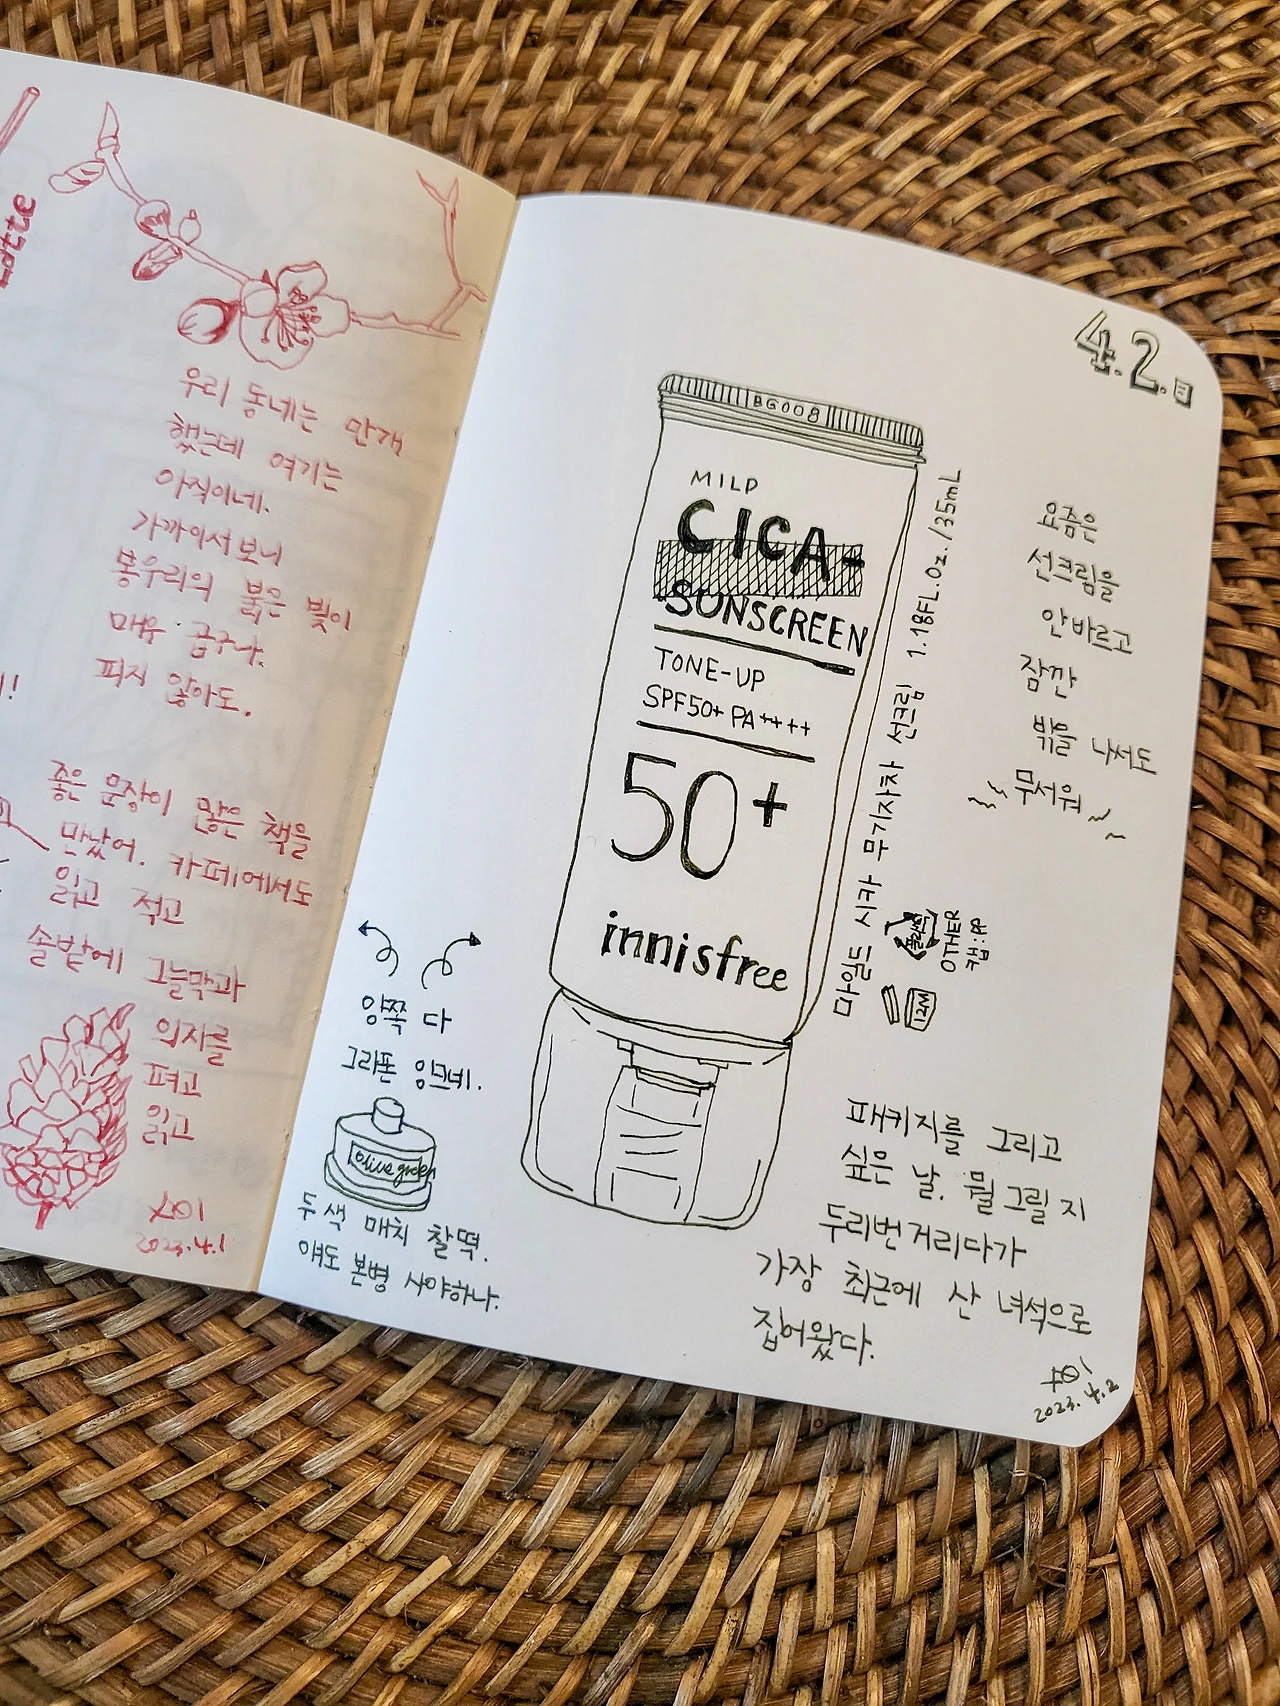 우리 동네는 만개
했는데 여기는
아직이네.
가까이서 보니
봉우리의 붉은 빛이
매우 곱구나.
피지 않아도.
좋은 문장이 많은 책을
만났어. 카페에서도
읽고 적고
솔밭에 그늘막과
의자를
펴고
읽고
2023.4.1
4.2.日
BG008
MILD
CICA-
SUNSCREEN
TONE-UP
SPF50+ PA++++
50+
innisfree
마일드 시카 무기자차 선크림 1.18FL.Oz./35mL
플라스틱
OTHER
캡:PP
12M
요즘은
선크림을
안바르고
잠깐
밖을 나서도
무서워
양쪽 다
그라폰 잉크네.
olive green
두 색 매치 찰떡.
얘도 본병 사야하나.
패키지를 그리고
싶은 날. 뭘 그릴지
두리번거리다가
가장 최근에 산 녀석으로
집어왔다.
2023.4.2